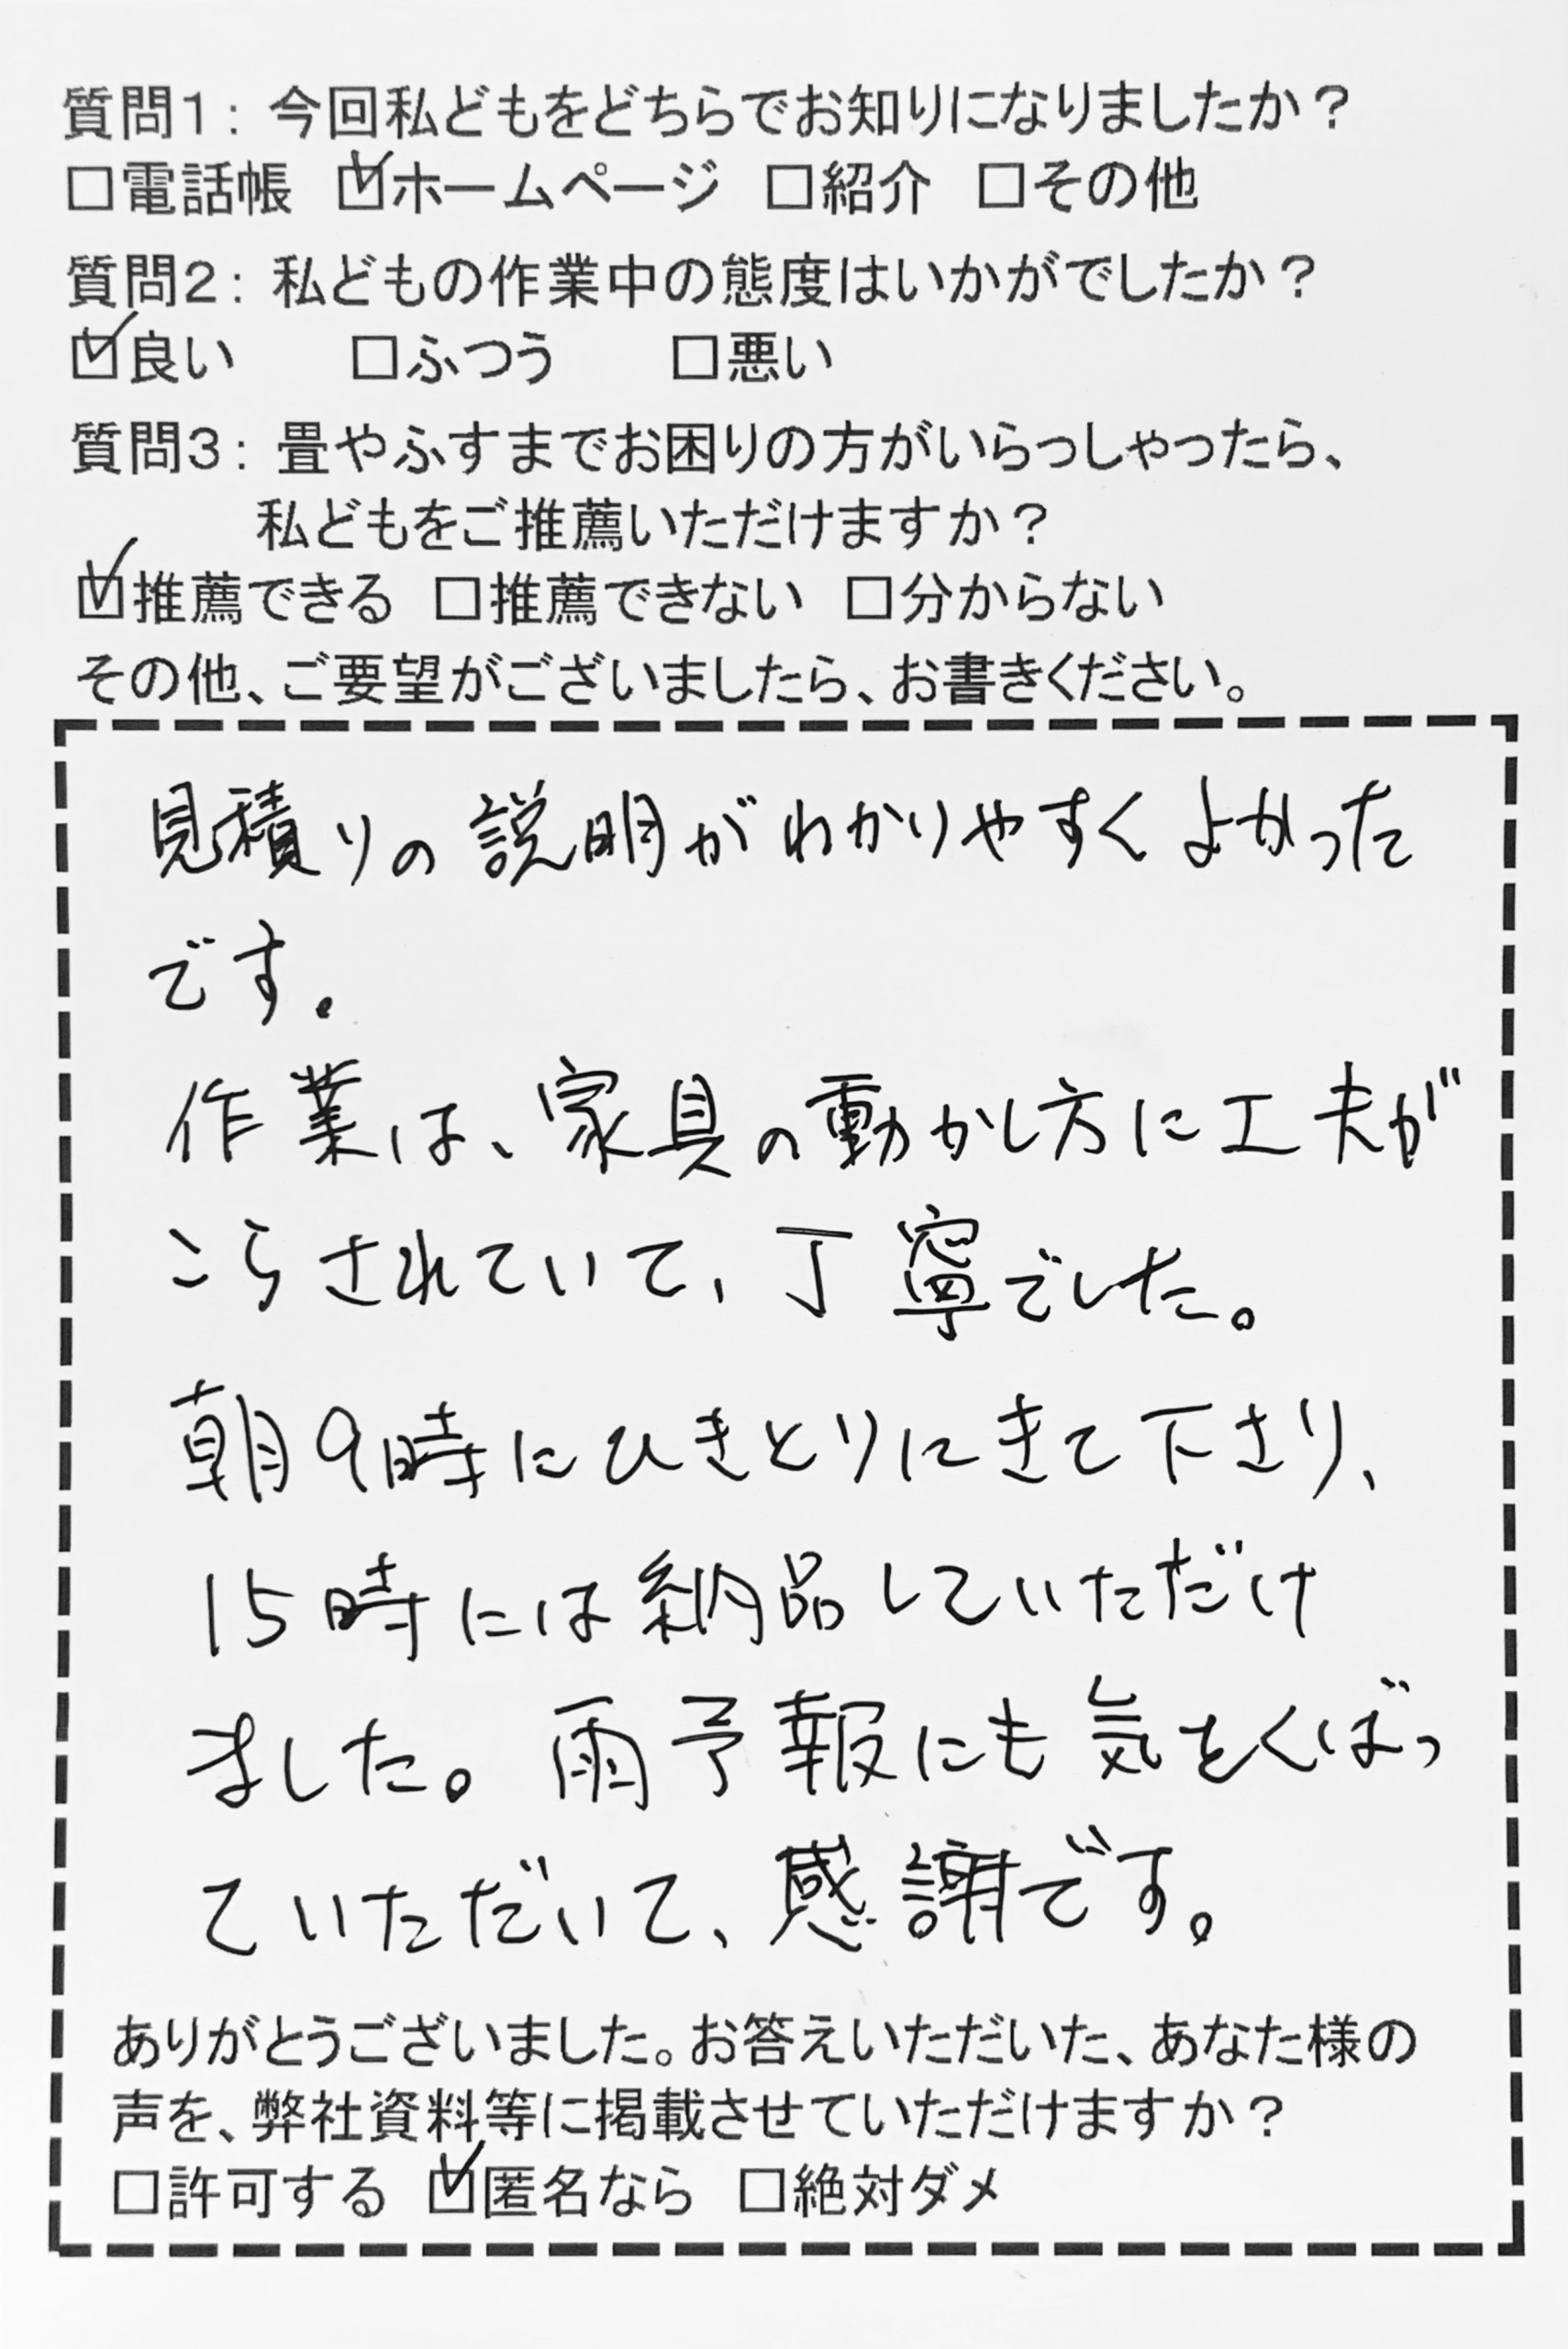 質問1：今回私どもをどちらでお知りになりましたか？
□電話帳 ☑ホームページ □紹介 □その他
質問2：私どもの作業中の態度はいかがでしたか？
☑良い □ふつう □悪い
質問3：畳やふすまでお困りの方がいらっしゃったら、
私どもをご推薦いただけますか？
☑推薦できる □推薦できない □分からない
その他、ご要望がございましたら、お書きください。
見積りの説明がわかりやすくよかった
です。
作業は、家具の動かし方に工夫が
こらされていて、丁寧でした。
朝9時にひきとりにきて下さり、
15時には納品していただけ
ました。雨予報にも気をくばっ
ていただいて、感謝です。
ありがとうございました。お答えいただいた、あなた様の
声を、弊社資料等に掲載させていただけますか？
□許可する ☑匿名なら □絶対ダメ